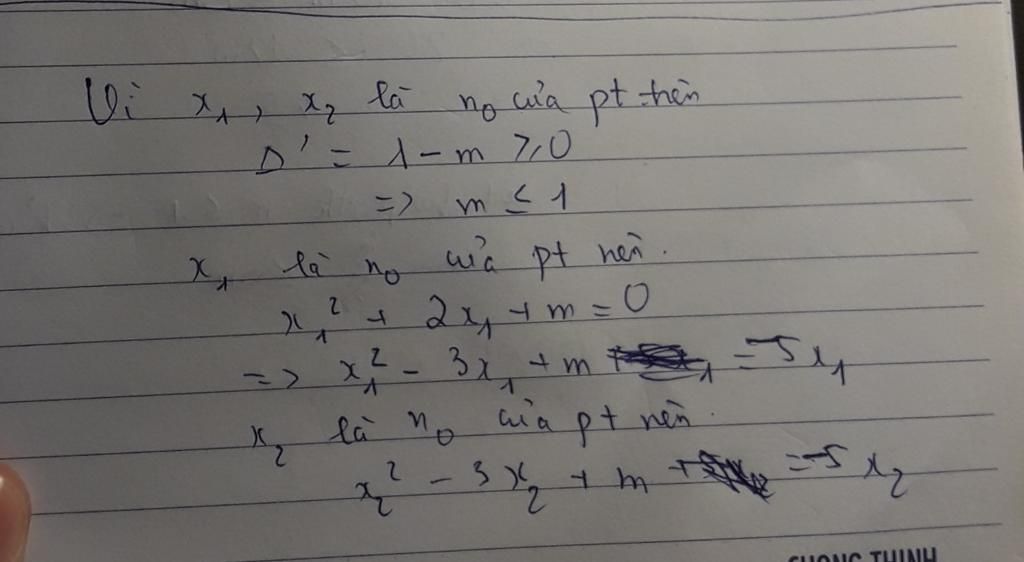 Vì x₁, x₂ là n₀ của pt trên
Δ' = 1 - m ≥ 0
=> m ≤ 1
x₁ là n₀ của pt nên.
x₁² + 2x₁ + m = 0
=> x₁² - 3x₁ + m = -5x₁
x₂ là n₀ của pt nên.
x₂² - 3x₂ + m = -5x₂